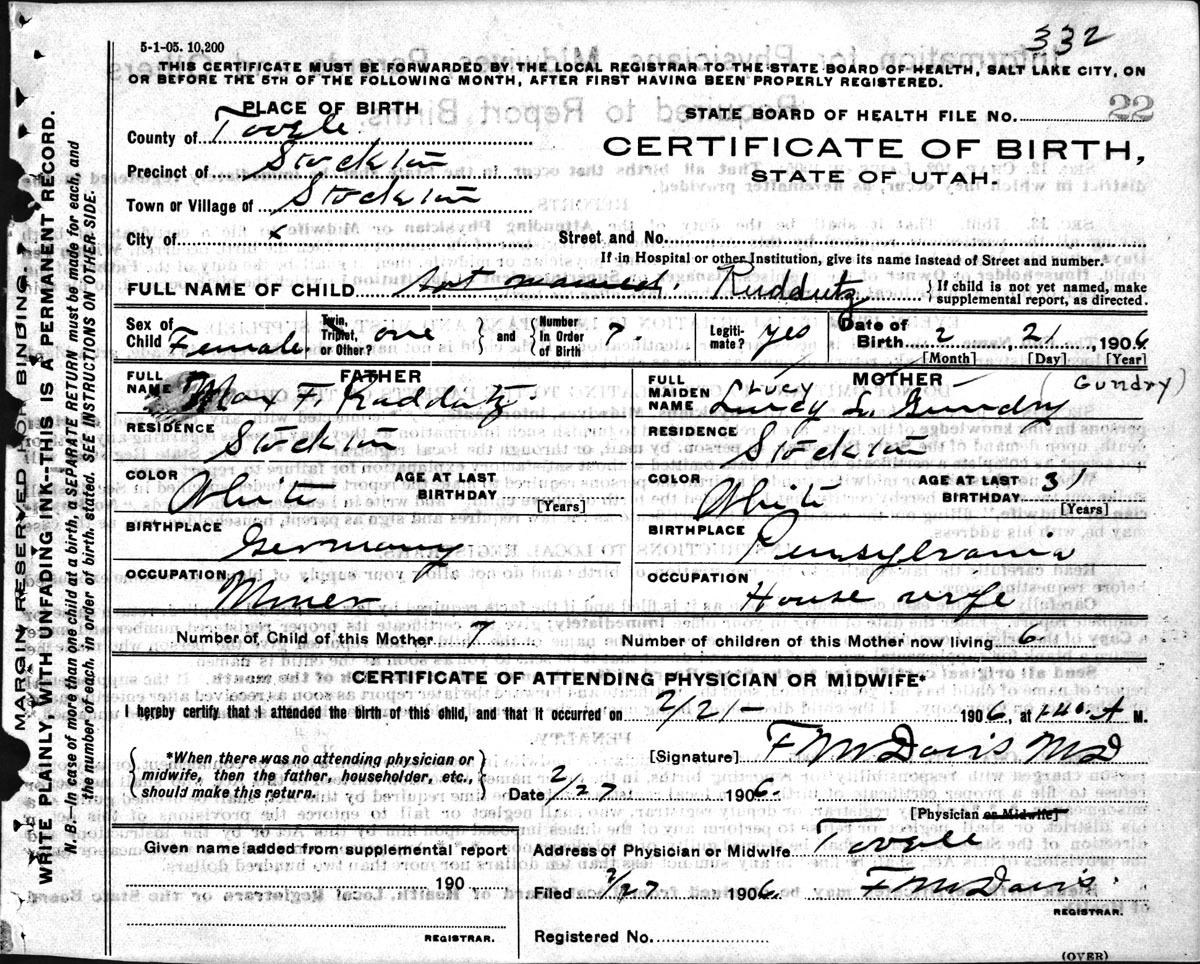 332
5-1-05. 10,200
THIS CERTIFICATE MUST BE FORWARDED BY THE LOCAL REGISTRAR TO THE STATE BOARD OF HEALTH, SALT LAKE CITY, ON
OR BEFORE THE 5TH OF THE FOLLOWING MONTH, AFTER FIRST HAVING BEEN PROPERLY REGISTERED.
PLACE OF BIRTH
STATE BOARD OF HEALTH FILE NO. 22
County of Tooele
CERTIFICATE OF BIRTH,
Precinct of Stockton
STATE OF UTAH.
Town or Village of Stockton
City of x Street and No.
If in Hospital or other Institution, give its name instead of Street and number.
FULL NAME OF CHILD not named. Ruddutz { If child is not yet named, make supplemental report, as directed.
Sex of Child Female Twin, Triplet, or Other? one } and { Number In Order of Birth 7. Legiti-mate? yes Date of Birth 2 21 1906
[Month] [Day] [Year]
FATHER
FULL NAME Max F. Raddatz
RESIDENCE Stockton
COLOR White AGE AT LAST BIRTHDAY [Years]
BIRTHPLACE Germany
OCCUPATION Miner
MOTHER
FULL MAIDEN NAME Lucy Lucy L. Gundry (Gundry)
RESIDENCE Stockton
COLOR White AGE AT LAST BIRTHDAY 31 [Years]
BIRTHPLACE Pensylvania
OCCUPATION House wife
Number of Child of this Mother 7 Number of children of this Mother now living 6
CERTIFICATE OF ATTENDING PHYSICIAN OR MIDWIFE*
I hereby certify that I attended the birth of this child, and that it occurred on 2/21- 1906, at 1-40. A M.
{ *When there was no attending physician or midwife, then the father, householder, etc., should make this return. }
[Signature] F M Davis MD
Date 2/27 1906.
[Physician or Midwife]
Given name added from supplemental report
190
REGISTRAR.
Address of Physician or Midwife Tooele
Filed 2/27 1906. F M Davis.
REGISTRAR.
Registered No.
(OVER)
MARGIN RESERVED FOR BINDING.
WRITE PLAINLY, WITH UNFADING INK--THIS IS A PERMANENT RECORD.
N. B.--In case of more than one child at a birth, a SEPARATE RETURN must be made for each, and
the number of each, in order of birth, stated. SEE INSTRUCTIONS ON OTHER SIDE.